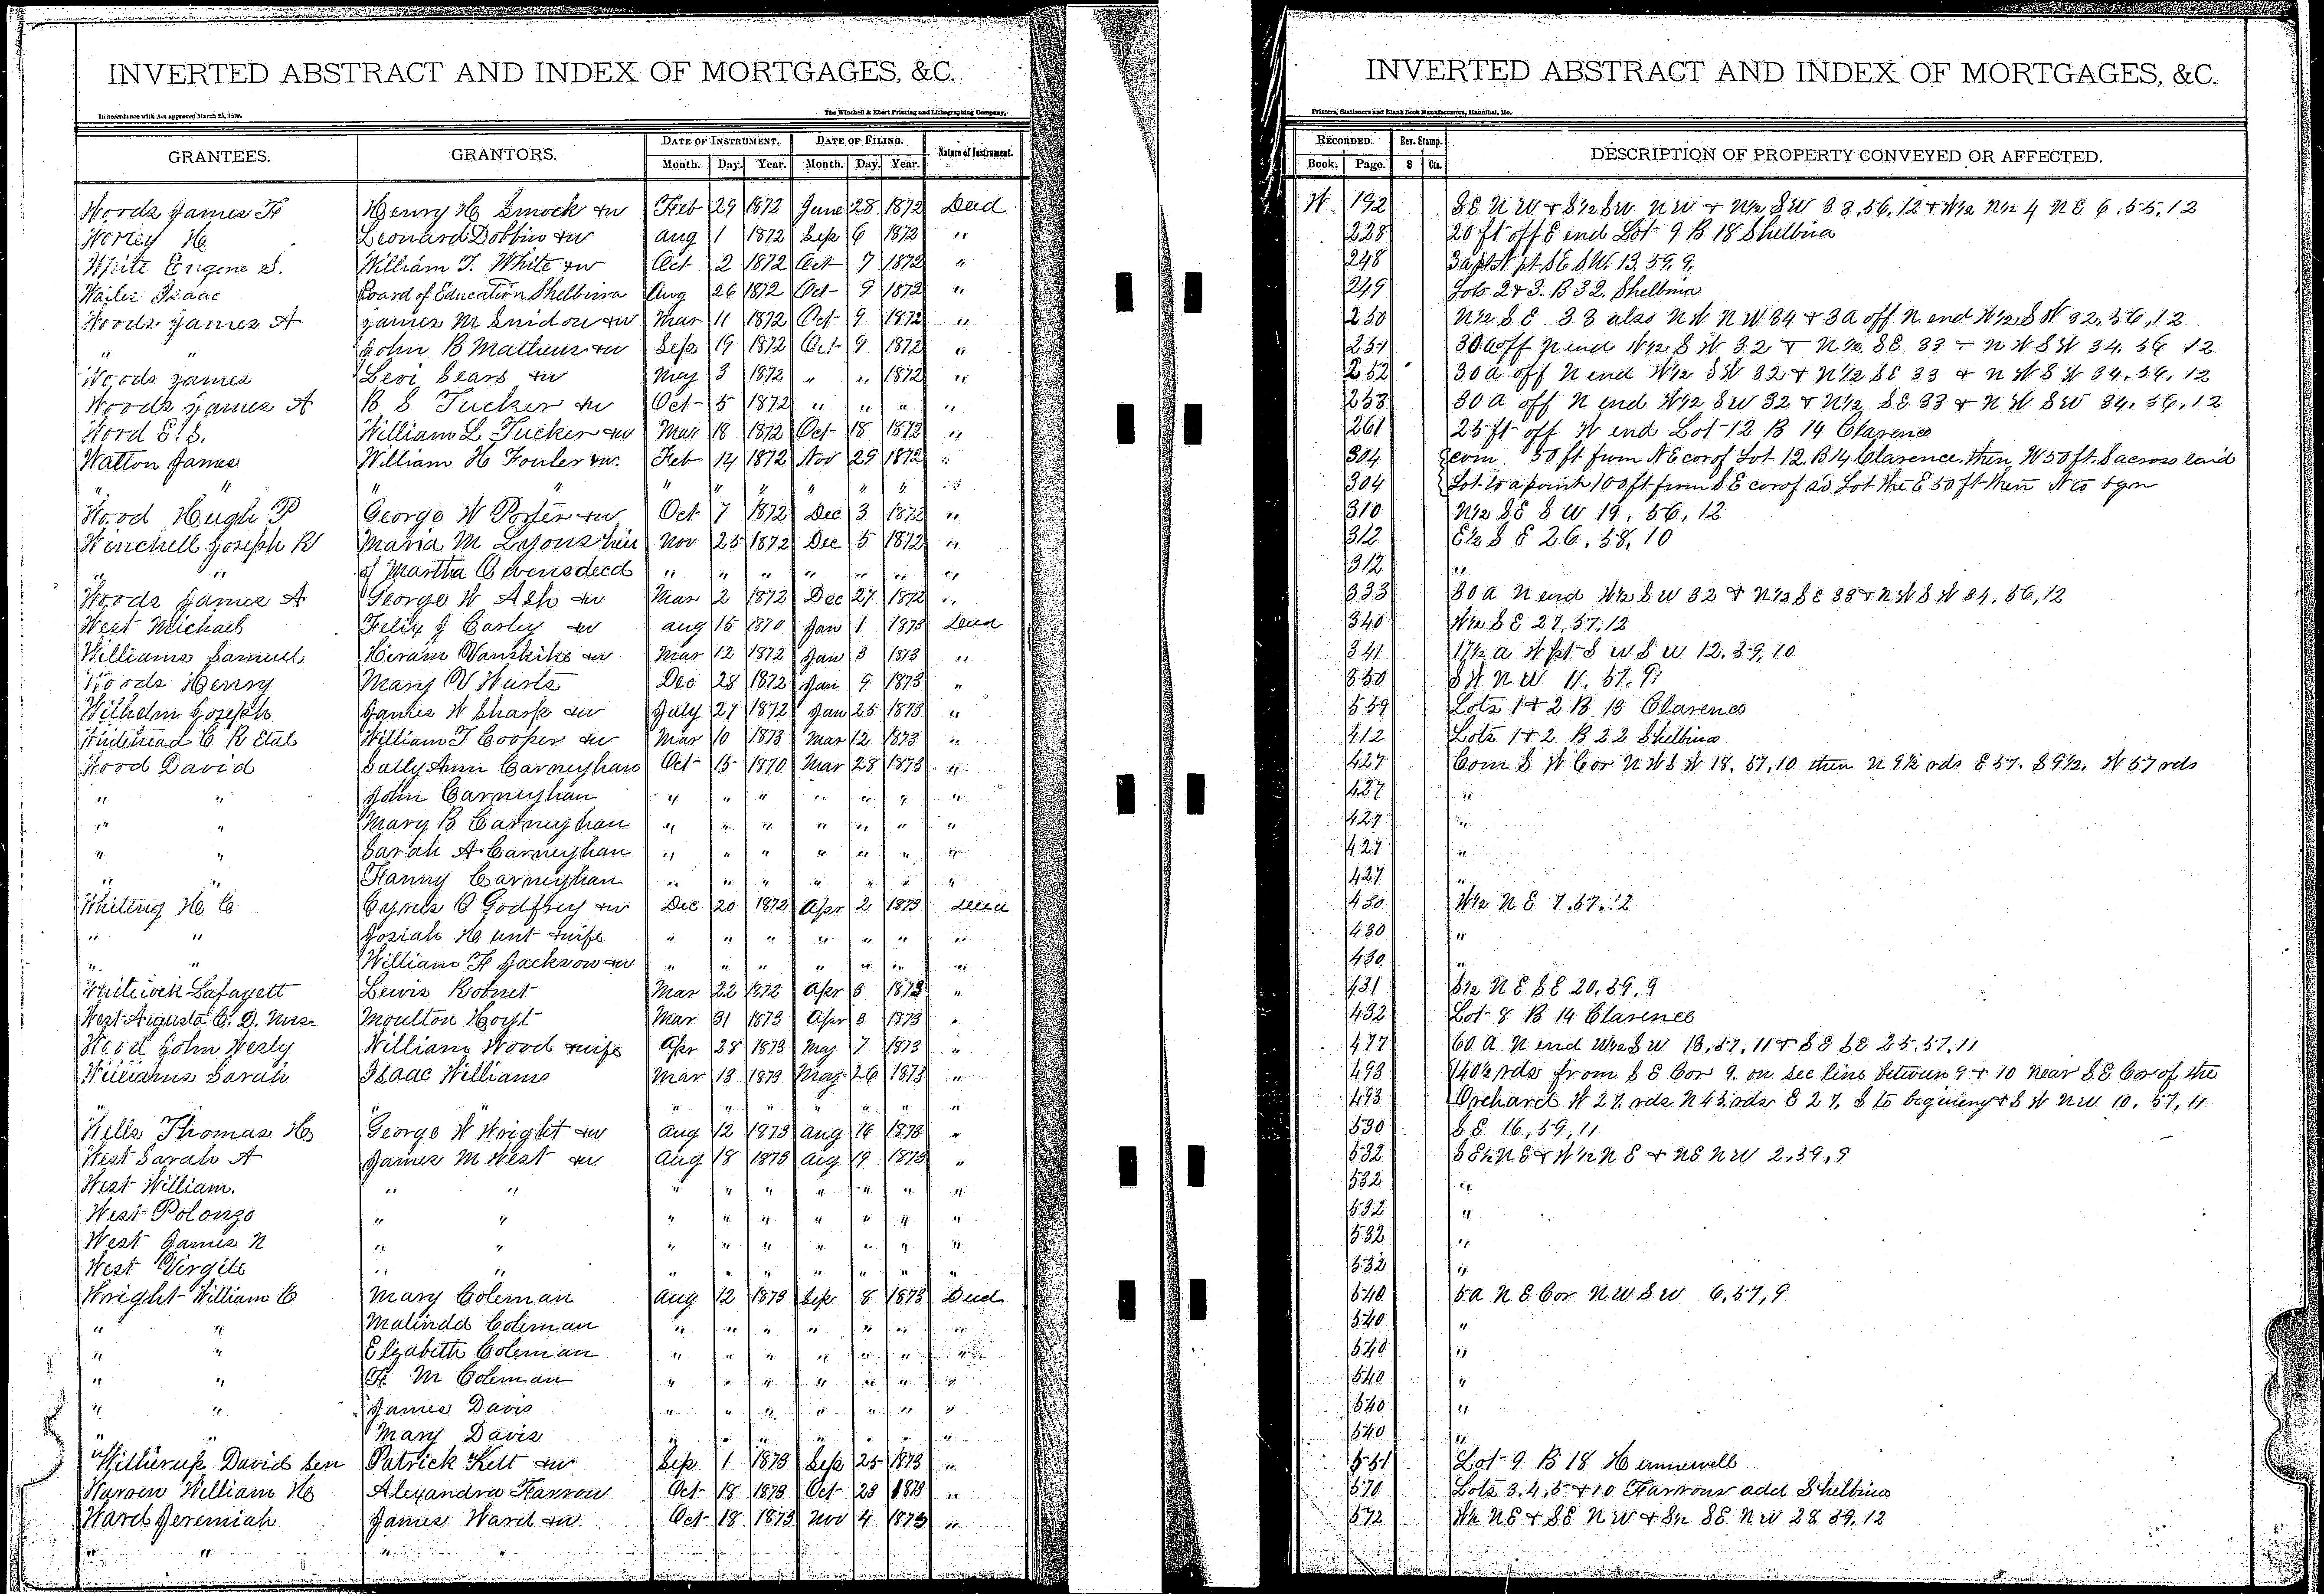 INVERTED ABSTRACT AND INDEX OF MORTGAGES, &C.
In accordance with Act approved March 25, 1870. The Winchell & Ebert Printing and Lithographing Company,
GRANTEES. GRANTORS. DATE OF INSTRUMENT. DATE OF FILING. Nature of Instrument.
Month. Day. Year. Month. Day. Year.
Woods James H Henry H Smock &w Feb 29 1872 June 28 1872 Deed
Worley H Leonard Dobbins &w Aug 1 1872 Sep 6 1872 "
White Eugene S. William T. White &w Oct 2 1872 Oct 7 1872 "
Wailes Isaac Board of Education Shelbina Aug 26 1872 Oct 9 1872 "
Woods James A James M Snidow &w Mar 11 1872 Oct 9 1872 "
" " John B Matheus &w Sep 19 1872 Oct 9 1872 "
Woods James Levi Sears &w May 3 1872 " " 1872 "
Woods James A B S Tucker &w Oct 5 1872 " " " "
Wood E. S. William L Tucker &w Mar 18 1872 Oct 18 1872 "
Watton James William H Fowler &w. Feb 14 1872 Nov 29 1872 "
" " " " " " " " " "
Wood Hugh P George W Porter &w Oct 7 1872 Dec 3 1872 "
Winchell Joseph R Maria M Lyons heir Nov 25 1872 Dec 5 1872 "
" " of Martha Owens decd " " " " " " "
Woods James A George W Ash &w Mar 2 1872 Dec 27 1872 "
West Michael Felix J Carley &w Aug 15 1870 Jan 1 1873 Deed
Williams Samuel Hiram Vanskike &w. Mar 12 1872 Jan 3 1873 "
Woods Henry Mary V Wurts Dec 28 1872 Jan 9 1873 "
Wilhelm Joseph James W Sharp &w July 27 1872 Jan 25 1873 "
Whitehead C R Etal William T Cooper &w Mar 10 1873 Mar 12 1873 "
Wood David Sally Ann Carneyhan Oct 15 1870 Mar 28 1873 "
" " John Carneyhan " " " " " " "
" " Mary B Carneyhan " " " " " " "
" " Sarah A Carneyhan " " " " " " "
" " Fanny Carneyhan " " " " " " "
Whiting H C Cyrus O Godfrey &w Dec 20 1872 Apr 2 1873 Deed
" " Josiah Hunt &wife " " " " " " "
" " William H Jackson &w " " " " " " "
Whitlock Lafayett Lewis Robnet Mar 22 1873 Apr 3 1873 "
West Augusta C. D. Mrs. Moulton Hoyt Mar 31 1873 Apr 3 1873 "
Wood John Wesly William Wood &wife Apr 28 1873 May 7 1873 "
Williams Sarah Isaac Williams Mar 13 1873 May 26 1873 "
" " " " " " " " "
Wells Thomas H George W Wright &w Aug 12 1973 Aug 16 1873 "
West Sarah A James M West &w Aug 18 1873 Aug 19 1873 "
West William. " " " " " " " " "
West Polonzo " " " " " " " " "
West James N " " " " " " " " "
West Virgile " " " " " " " " "
Wright William C Mary Coleman Aug 12 1873 Sep 8 1873 Deed
" " Malinda Coleman " " " " " " "
" " Elizabeth Coleman " " " " " " "
" " H M Coleman " " " " " " "
" " James Davis " " " " " " "
" " Mary Davis " " " " " " "
Witherup David Sen Patrick Kelt &w Sep 1 1873 Sep 25 1873 "
Warren William H Alexandra Farrow Oct 18 1873 Oct 23 1873 "
Ward Jeremiah James Ward &w Oct 18 1873 Nov 4 1873 "
" " "
INVERTED ABSTRACT AND INDEX OF MORTGAGES, &C.
Printers, Stationers and Blank Book Manufacturers, Hannibal, Mo.
RECORDED. Rev. Stamp. DESCRIPTION OF PROPERTY CONVEYED OR AFFECTED.
Book. Page. $ Cts.
W 192 SE NW & S½ SW NW & N½ SW 33, 56, 12 & W½ N½ 4 NE 6, 55, 12
228 20 ft off E end Lot 9 B 18 Shelbina
248 3 a pt N pt SE SW. 13, 59, 9,
249 Lots 2 & 3. B 32. Shelbina
250 N½ SE 33 also NW NW 34 & 3a off N end W½ SW 32, 56, 12
251 30 a off N end W½ SW 32 & N½ SE 33 & NW SW 34. 56 12
252 30 a off N end W½ SW 32 & N½ SE 33 & NW SW 34, 56, 12
253 30 a off N end W½ SW 32 & N½ SE 33 & NW SW 34. 56, 12
261 25 ft off W end Lot 12 B 14 Clarence
304 com 50 ft from NE cor of Lot 12. B 14 Clarence, then W 50 ft. S across said
304 Lot to a point 100 ft from SE cor of sd Lot the E 50 ft then N to bgn
310 N½ SE SW 19, 56, 12
312 E½ SE 26, 58, 10
312 "
333 30 a N end W½ SW 32 & N½ SE 33 & NW SW 34, 56, 12
340 W½ SE 27, 57, 12
341 17½ a W pt SW SW 12, 59, 10
350 SW NW 11, 57, 9
359 Lots 1 & 2 B 13 Clarence
412 Lots 1 & 2 B 22 Shelbina
427 Com SW Cor NW SW 18, 57, 10 then N 9½ rds E 57. S 9½. W 57 rds
427 "
427 "
427 "
427 "
430 W½ NE 7, 57, 12
430 "
430 "
431 S½ NE SE 20, 59, 9
432 Lot 8 B 14 Clarence
477 60 a N end W½ SW 13, 57, 11 & SE SE 25, 57, 11
493 140½ rds from SE Cor 9. on sec line between 9 & 10 near SE Cor of the
493 Orchard W 27 rds N 43 rds E 27, S to begining & SW NW 10, 57, 11
530 SE 16, 59, 11
532 SE½ NE & W½ NE & NE NW 2, 59, 9
532 "
532 "
532 "
532 "
540 5 a NE Cor NW SW 6, 57, 9
540 "
540 "
540 "
540 "
540 "
551 Lot 9 B 18 Hunnewell
570 Lots 3, 4, 5 & 10 Farrows add Shelbina
572 W½ NE & SE NW & S½ SE NW 28 59, 12